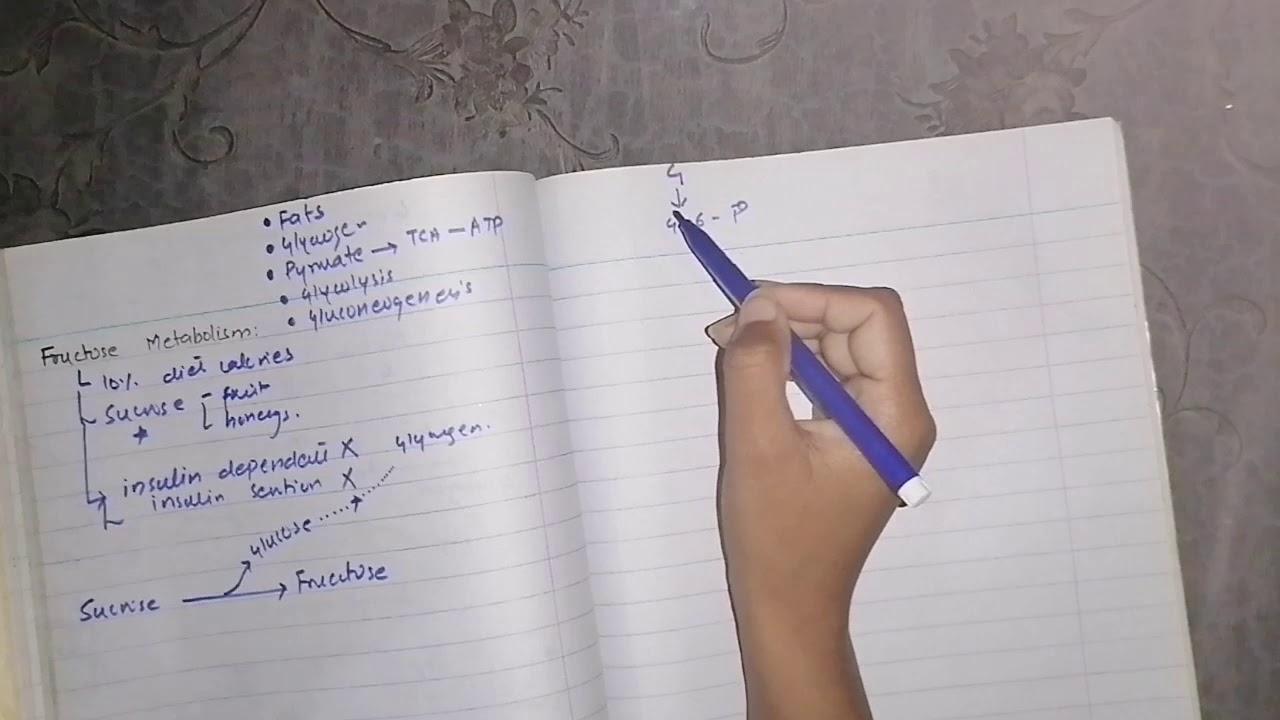 • Fats
• Glycogen
• Pyruvate → TCA – ATP
• Glycolysis
• Gluconeogenesis
Fructose Metabolism:
10% diet calories
Sucrose – fruit
honeys.
insulin dependent X
insulin X
Glycogen.
Glucose
Sucrose → Fructose
G
↓
6 - P